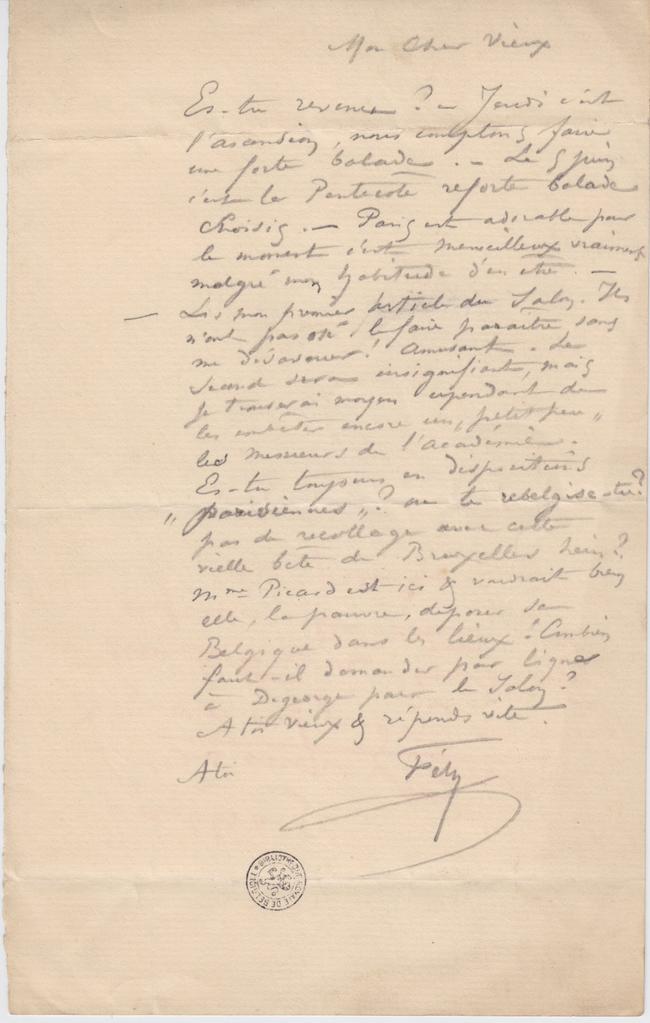 Mon Cher Vieux
Es-tu revenu ? – Jeudi c'est
l'ascension, nous comptons faire
une forte balade. – Le 5 juin
c'est la Pentecôte reforte balade
choisis. – Paris est adorable pour
le moment c'est merveilleux vraiment
malgré mon habitude d'en être. –
– Lis mon premier article du Salon. Ils
n'ont pas osé le faire paraître sans
me désavouer ! Amusant. Le
second sera insignifiant, mais
je trouverai moyen cependant de
les embêter encore un „petit peu„
les messieurs de l'académie.
Es-tu toujours en dispositions
„parisiennes„ ? ou te rebelgises-tu ?
pas de recollage avec cette
vielle bête de Bruxelles hein ?
Mme Picard est ici & voudrait bien
elle, la pauvre, déposer sa
Belgique dans les lieux ! Combien
faut-il demander par ligne
à Degeorge pour le Salon ?
A toi vieux & réponds vite.
A toi
Fély
BIBLIOTHEQUE ROYALE DE BELGIQUE